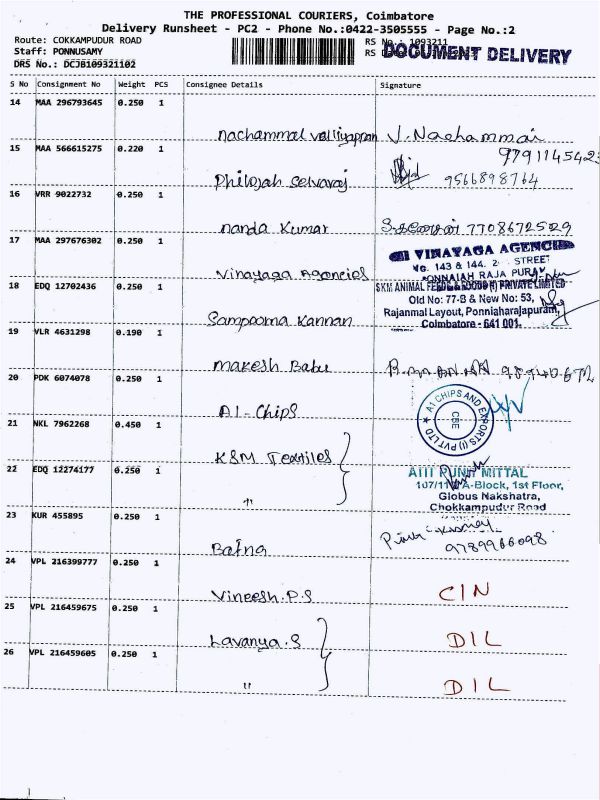 THE PROFESSIONAL COURIERS, Coimbatore
Delivery Runsheet - PC2 - Phone No.:0422-3505555 - Page No.:2
Route: COKKAMPUDUR ROAD
RS No.: 1093211
Staff: PONNUSAMY
DOCUMENT DELIVERY
DRS No.: DCJB109321102
S No Consignment No Weight PCS Consignee Details Signature
14 MAA 296793645 0.250 1
nachammal valliyappan V. Nachammai
9791145423
15 MAA 566615275 0.220 1
Philojah Selvaraj 9566898764
16 VRR 9022732 0.250 1
nanda Kumar 7708672529
17 MAA 297676302 0.250 1
VINAYAGA AGENCIES
No. 143 & 144, STREET
PONNAIAH RAJA PURAM
Vinayaga Agencies
18 EDQ 12702436 0.250 1
SKM ANIMAL FEEDS & FOODS (I) PRIVATE LIMITED
Old No: 77-B & New No: 53,
Rajanmal Layout, Ponniaharajapuram,
Coimbatore - 641 001.
Sampoorna Kannan
19 VLR 4631298 0.190 1
Makesh Babu
20 PDK 6074078 0.250 1
A1-Chips
A1 CHIPS AND EXPORTS (I) PVT LTD
CBE
21 NKL 7962268 0.450 1
KSM Textiles
22 EDQ 12274177 0.250 1
PUNIT MITTAL
A-Block, 1st Floor,
Globus Nakshatra,
Chokkampudur Road
"
23 KUR 455895 0.250 1
Bafna 9789966098
24 VPL 216399777 0.250 1
Vineesh.P.S CIN
25 VPL 216459675 0.250 1
Lavanya.S DIL
26 VPL 216459605 0.250 1
" DIL